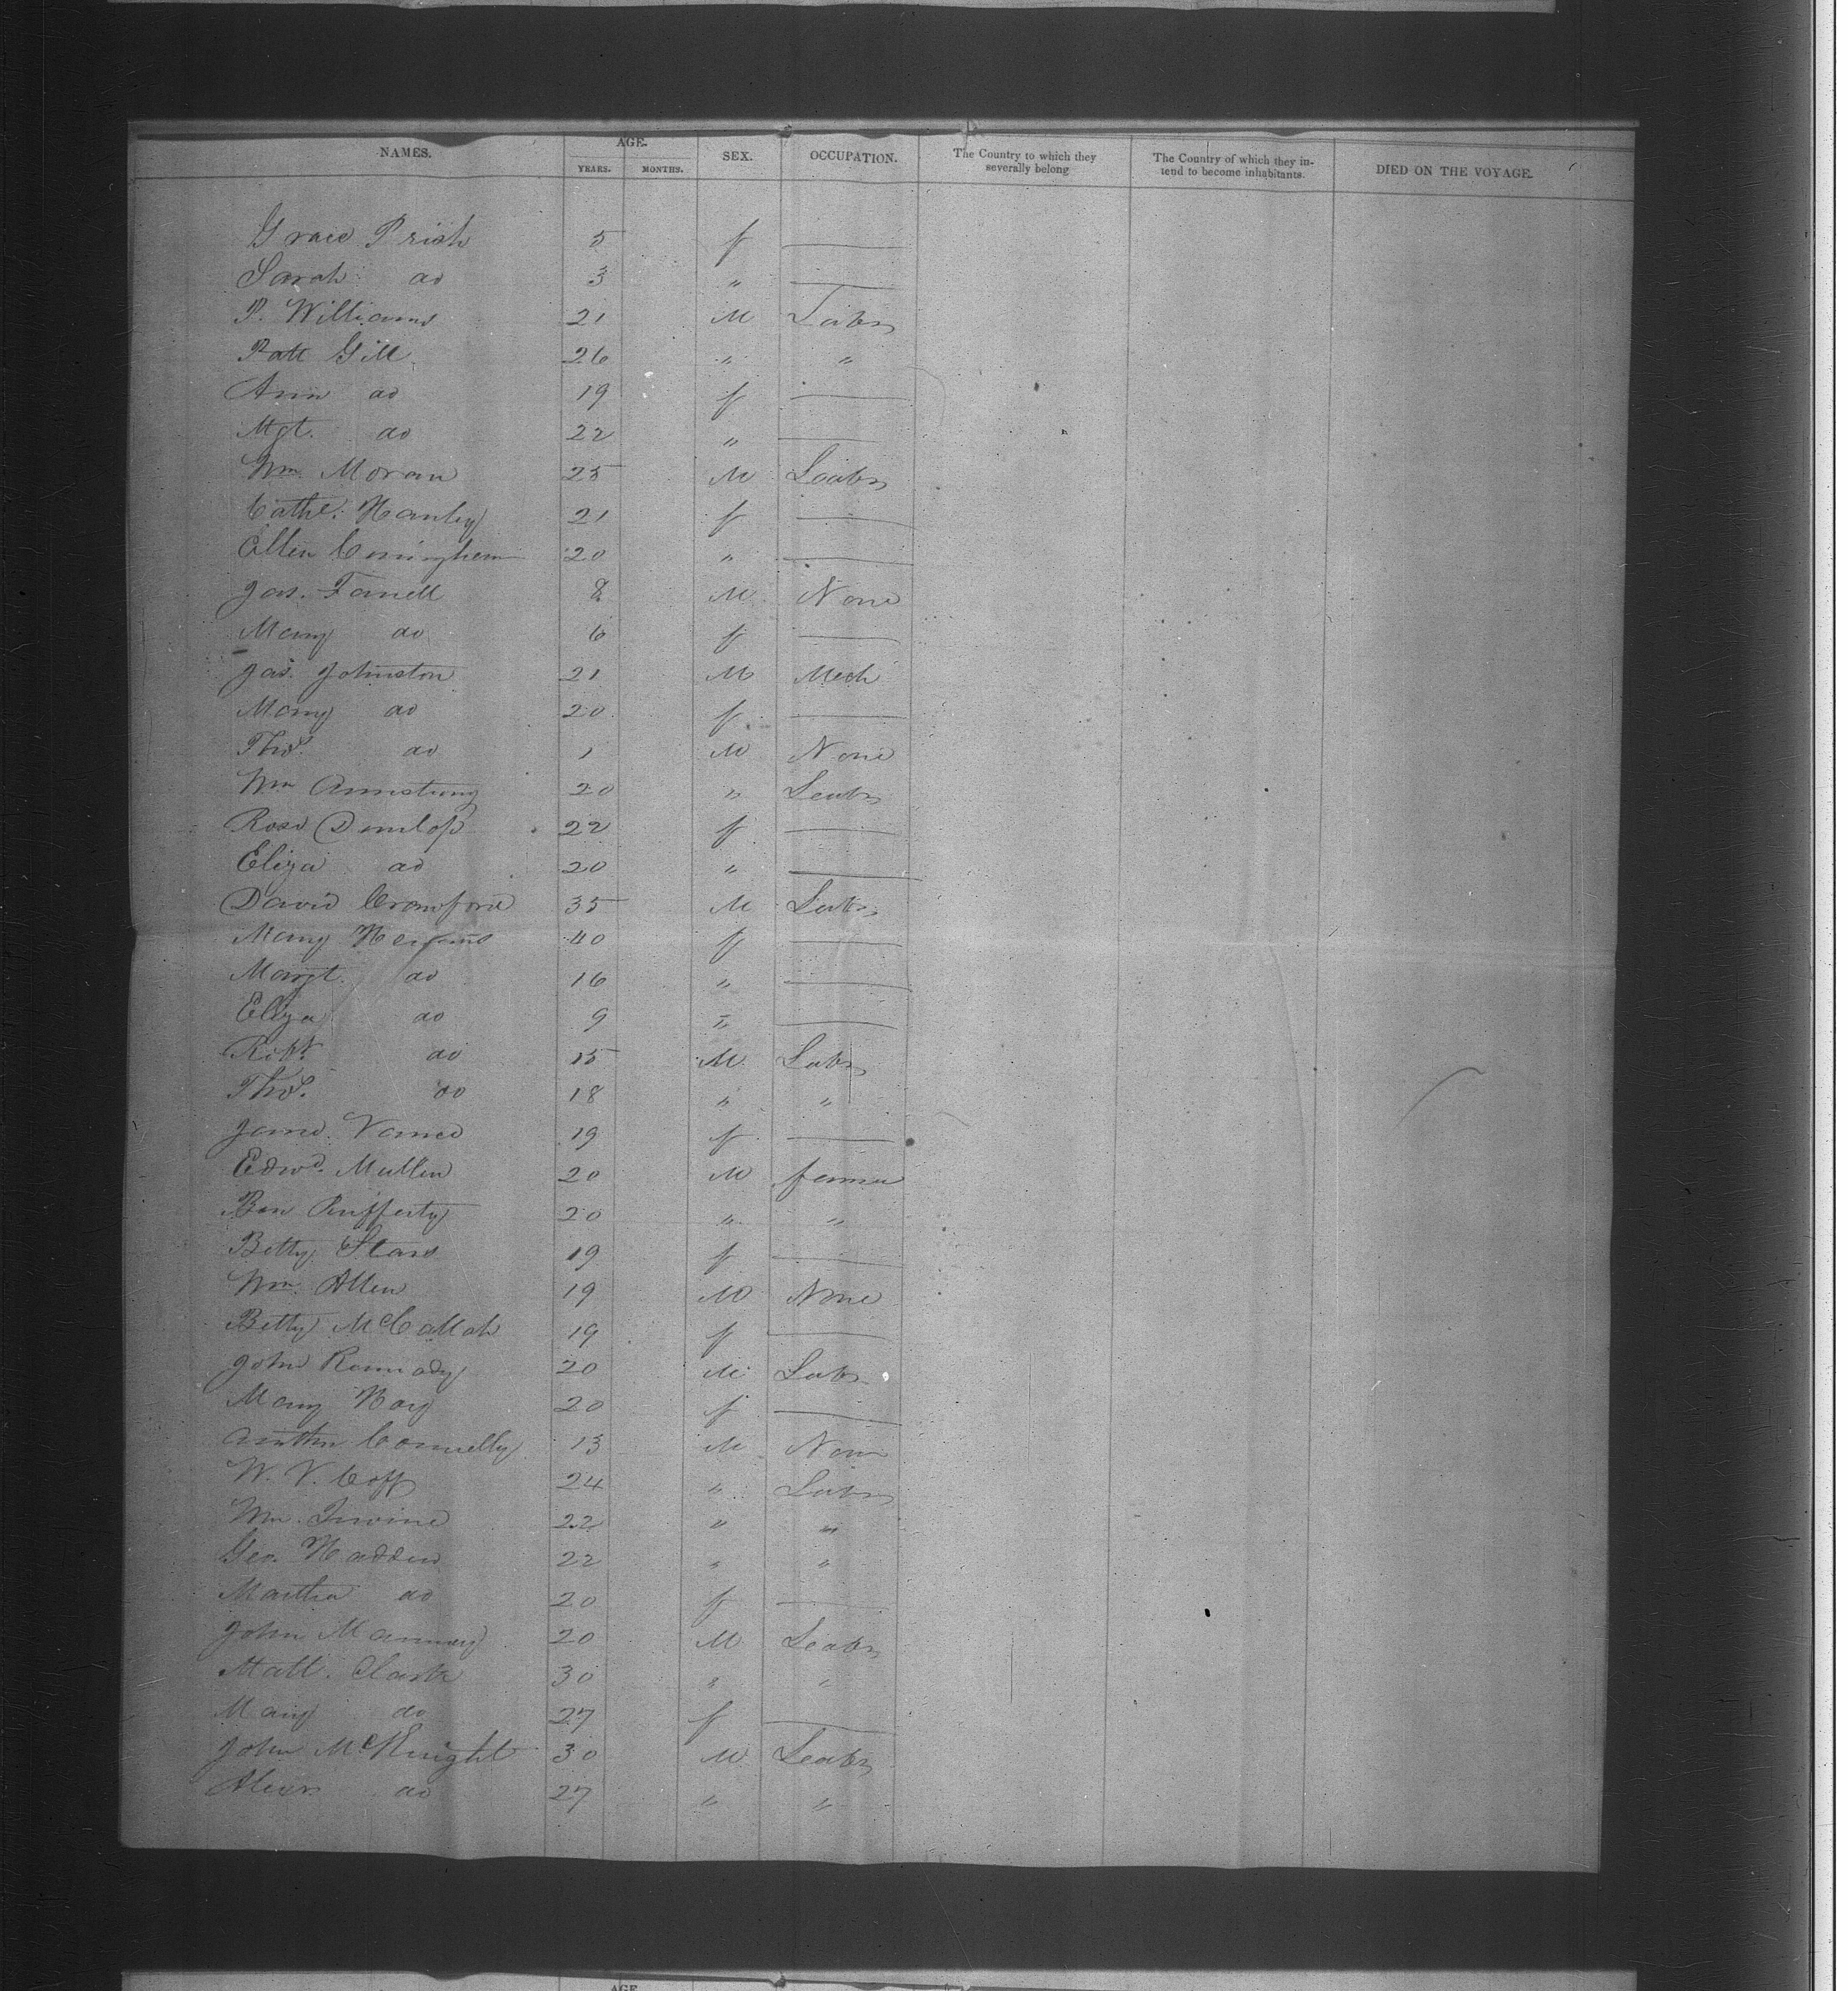 NAMES. AGE. SEX. OCCUPATION. The Country to which they severally belong The Country of which they in-tend to become inhabitants. DIED ON THE VOYAGE.
YEARS. MONTHS.
Grace 5 f —
Sarah do 3 " —
P. Williams 21 M Labr
Patt Gill 26 " "
Ann do 19 f —
Mgt. do 22 " —
Wm. Moran 25 M Labr
Cathe. Hanley 21 f —
Ellen Cuningham 20 " —
Jas. Farrell 8 M None
Mary do 6 f —
Jas. Johnston 21 M Mech
Mary do 20 f —
Thos. do 1 M None
Wm Armstrong 20 " Labr
Rose Dunlop 22 f —
Eliza do 20 " —
David Crawford 35 M Labr
Mary 40 f —
Margt. do 16 " —
Eliza do 9 " —
Robt. do 15 M Labr
Thos. do 18 " "
Vance 19 f —
Edwd. Mullen 20 M farmer
20 " "
Betty 19 f —
Wm. Allen 19 M None
Betty 19 f —
John 20 M Labr
Mary 20 f —
Connelly 13 M None
W. V. 24 " Labr
Wm. Irvine 22 " "
Geo. Hadden 22 " "
Martha do 20 f —
John 20 M Labr
Matt. Clark 30 " "
Mary do 27 f —
John McKnight 30 M Labr
Alexr do 27 " "
AGE